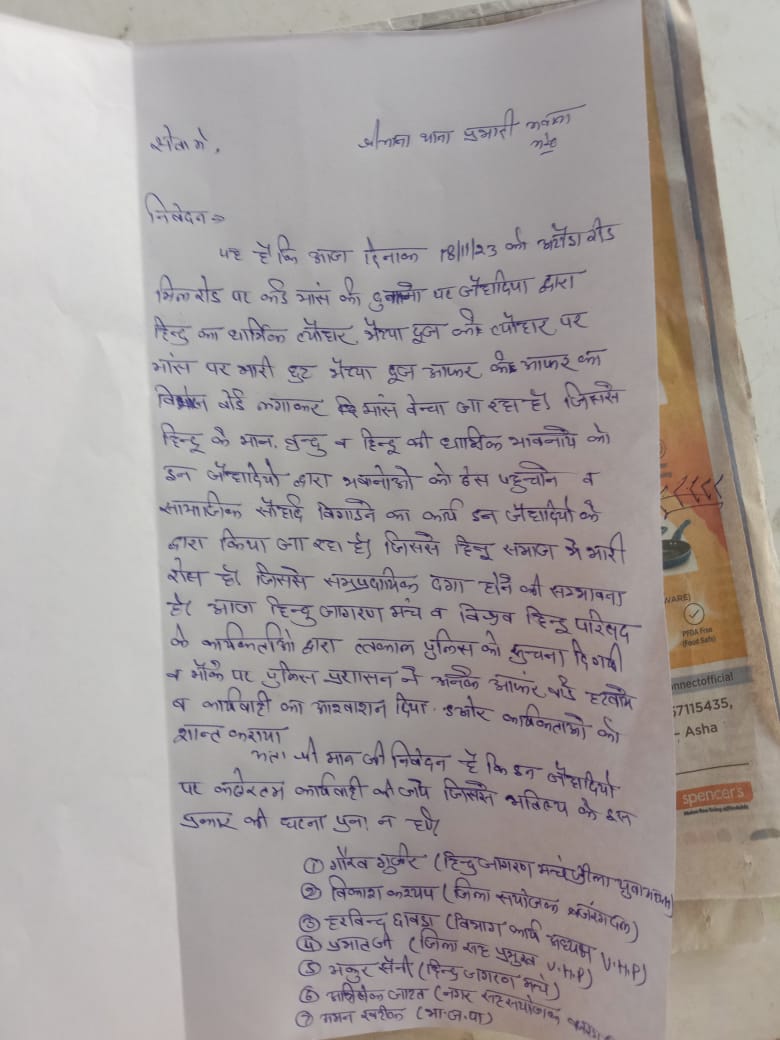 सेवा मे,
श्रीमान थाना प्रभारी
निवेदन ⇒
यह है कि आज दिनाक 18/11/23 को रोड
मिल रोड पर कई मांस की दुकानो पर जेहादियो द्वारा
हिन्दु का धार्मिक त्यौहार भैय्या दूज की त्यौहार पर
मांस पर भारी छुट भैय्या दूज आफर की आफर का
बोर्ड लगाकर मांस बेन्चा जा रहा है। जिससे
हिन्दू के मान, व हिन्दू की धार्मिक भावनाये को
इन जेहादियो द्वारा को ठेस पहुचाने व
सामाजिक सौहार्द बिगाडने का कार्य इन जेहादियो के
द्वारा किया जा रहा है। जिससे हिन्दू समाज मे भारी
रोस है। जिससे सम्प्रदायिक दगा होने की सम्भावना
है। आज हिन्दु जागरण मंच व विश्व हिन्दू परिषद
के कार्यकर्ताओ द्वारा तत्काल पुलिस को सुचना दि गयी
व मौके पर पुलिस प्रशासन ने अनेक आफर बोर्ड हटवाये
व कार्यवाही का आश्वाशन दिया। ओर कार्यकर्ताओ को
शान्त कराया
अता श्री मान जी निवेदन है कि इन जेहादियो
पर कठोरतम कार्यवाही की जाये जिससे भविष्य के इस
प्रकार की घटना पुनः न हो।
① गौरव गुर्जर (हिन्दु जागरण मन्च जीला युवा
② विकाश कश्यप (जिला सयोजक बजरंगदल)
③ हरविन्द्र छाबडा (विभाग कार्य अध्यक्ष V.H.P)
④ प्रभातजी (जिला सह प्रमुख V.H.P)
⑤ सैनी (हिन्दु जागरण मन्च)
⑥ अभिषेक (नगर सहसयोजक
⑦ खटीक (भा.ज.पा)
WARE)
PFOA Free
(Food Safe)
nnectofficial
57115435,
- Asha
spencer's